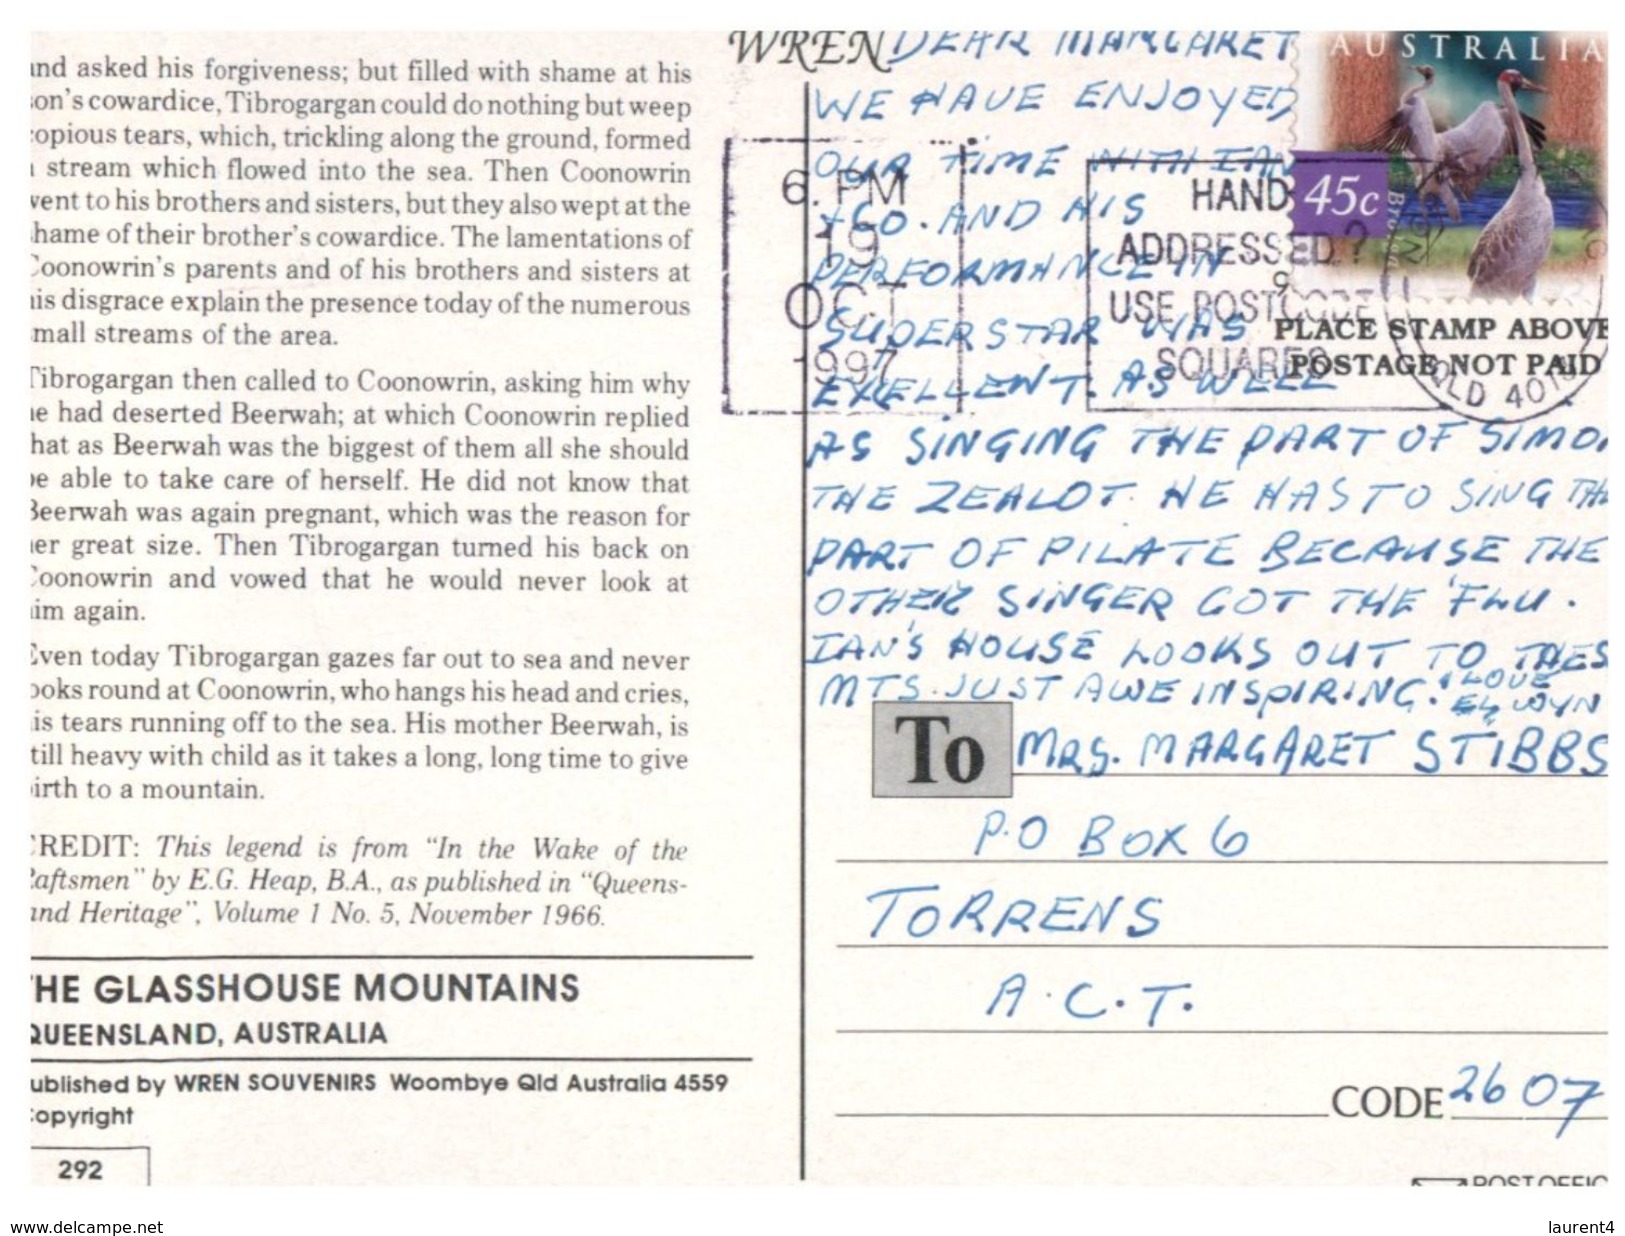 and asked his forgiveness; but filled with shame at his
son's cowardice, Tibrogargan could do nothing but weep
copious tears, which, trickling along the ground, formed
a stream which flowed into the sea. Then Coonowrin
went to his brothers and sisters, but they also wept at the
shame of their brother's cowardice. The lamentations of
Coonowrin's parents and of his brothers and sisters at
his disgrace explain the presence today of the numerous
small streams of the area.
Tibrogargan then called to Coonowrin, asking him why
he had deserted Beerwah; at which Coonowrin replied
that as Beerwah was the biggest of them all she should
be able to take care of herself. He did not know that
Beerwah was again pregnant, which was the reason for
her great size. Then Tibrogargan turned his back on
Coonowrin and vowed that he would never look at
him again.
Even today Tibrogargan gazes far out to sea and never
looks round at Coonowrin, who hangs his head and cries,
his tears running off to the sea. His mother Beerwah, is
still heavy with child as it takes a long, long time to give
birth to a mountain.
CREDIT: This legend is from "In the Wake of the
Raftsmen" by E.G. Heap, B.A., as published in "Queens-
land Heritage", Volume 1 No. 5, November 1966.
THE GLASSHOUSE MOUNTAINS
QUEENSLAND, AUSTRALIA
Published by WREN SOUVENIRS Woombye Qld Australia 4559
Copyright
292
WREN
DEAR MARGARET
WE HAVE ENJOYED
OUR TIME WITH IAN
+ CO. AND HIS
PERFORMANCE IN
SUPERSTAR WAS
EXELLENT. AS WELL
AS SINGING THE PART OF SIMON
THE ZEALOT. HE HAS TO SING THE
PART OF PILATE BECAUSE THE
OTHER SINGER GOT THE 'FLU.
IAN'S HOUSE LOOKS OUT TO THES
MTS. JUST AWE INSPIRING. LOVE
ELWYN
AUSTRALIA
45c
Brolga
6. PM
19
OCT
1997
HAND
ADDRESSED?
USE POSTCODE
SQUARES
QLD 401
PLACE STAMP ABOVE
POSTAGE NOT PAID
To
MRS. MARGARET STIBBS
P.O BOX 6
TORRENS
A.C.T.
CODE 2607
POST OFFIC
www.delcampe.net
laurent4